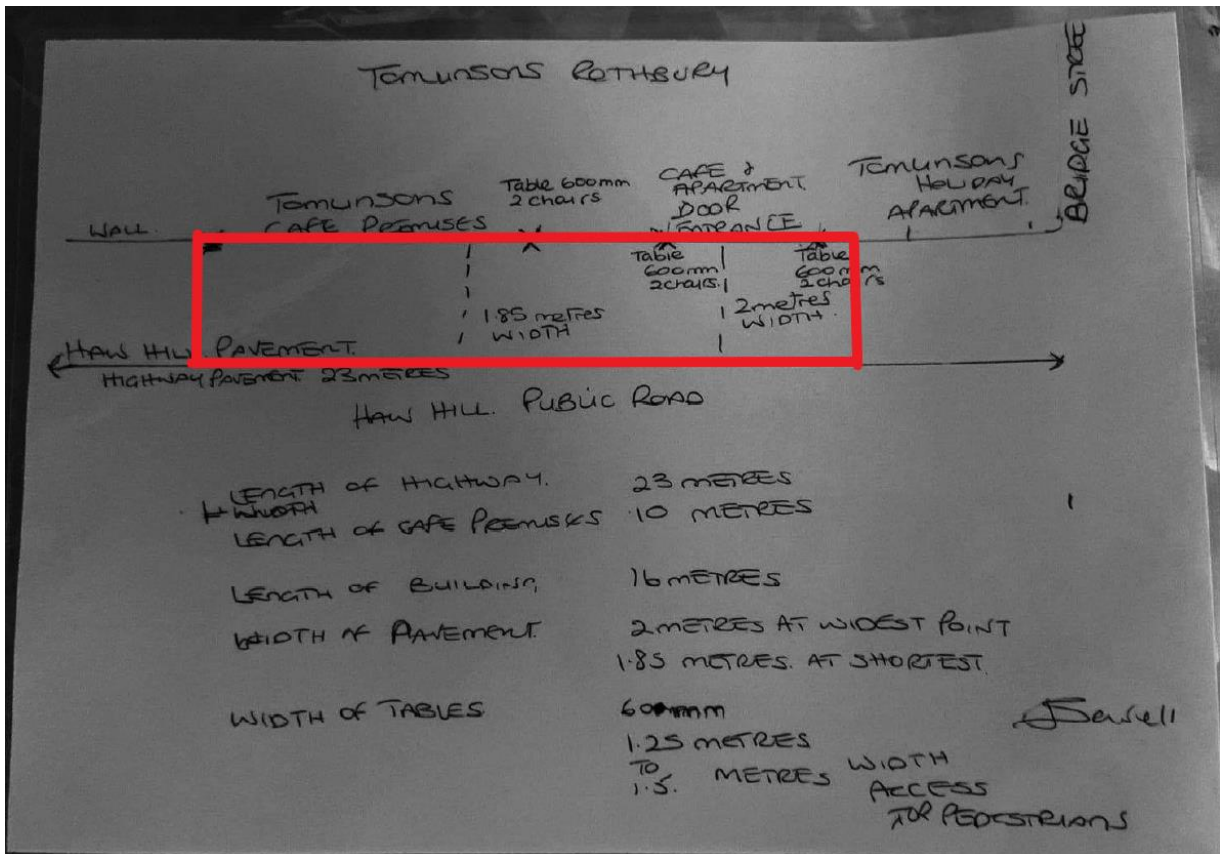 TOMLINSONS ROTHBURY
BRIDGE STREE
WALL
TOMLINSONS
CAFE PREMISES
Table 600mm
2 chairs
CAFE &
APARTMENT
DOOR
ENTRANCE
TOMLINSONS
HOLIDAY
APARTMENT.
Table
600mm
2 chairs.
Table
600mm
2 chairs
1.85 metres
WIDTH
2 metres
WIDTH.
HAW HILL PAVEMENT.
HIGHWAY PAVEMENT 23 METRES
HAW HILL. PUBLIC ROAD
LENGTH OF HIGHWAY. 23 METRES
WIDTH
LENGTH OF CAFE PREMISES 10 METRES
LENGTH OF BUILDING, 16 METRES
WIDTH OF PAVEMENT. 2 METRES AT WIDEST POINT
1.85 METRES. AT SHORTEST.
WIDTH OF TABLES 600mm
1.25 METRES
TO
1.5. METRES WIDTH
ACCESS
FOR PEDESTRIANS